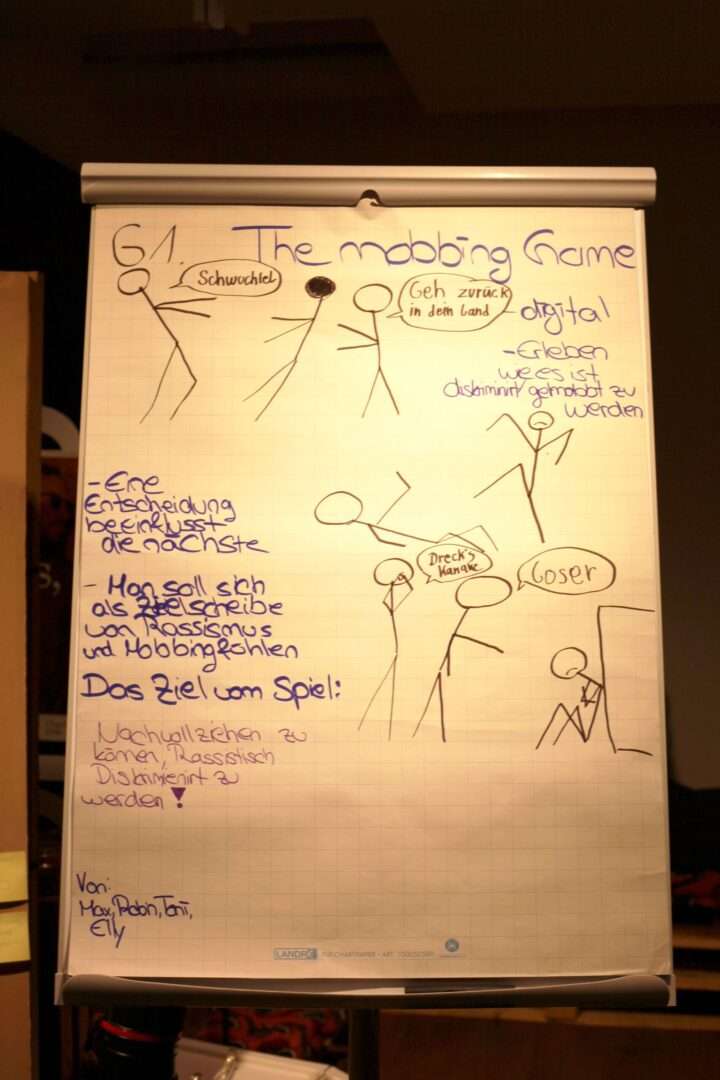 G1. The mobbing Game
Schwuchtel
Geh zurück
in dein Land
- digital
- Erleben
wie es ist
diskriminirt/gemobbt zu
werden
- Eine
Entscheidung
beeinflusst
die nächste
- Man soll sich
als Zielscheibe
von Rassismus
und Mobbing fühlen
Dreck's
Kanake
Loser
Das Ziel vom Spiel:
Nachvollziehen zu
können, Rassistisch
Diskrimienirt zu
werden!
Von:
Max, Robin, Toni,
Elly
LANDRÉ